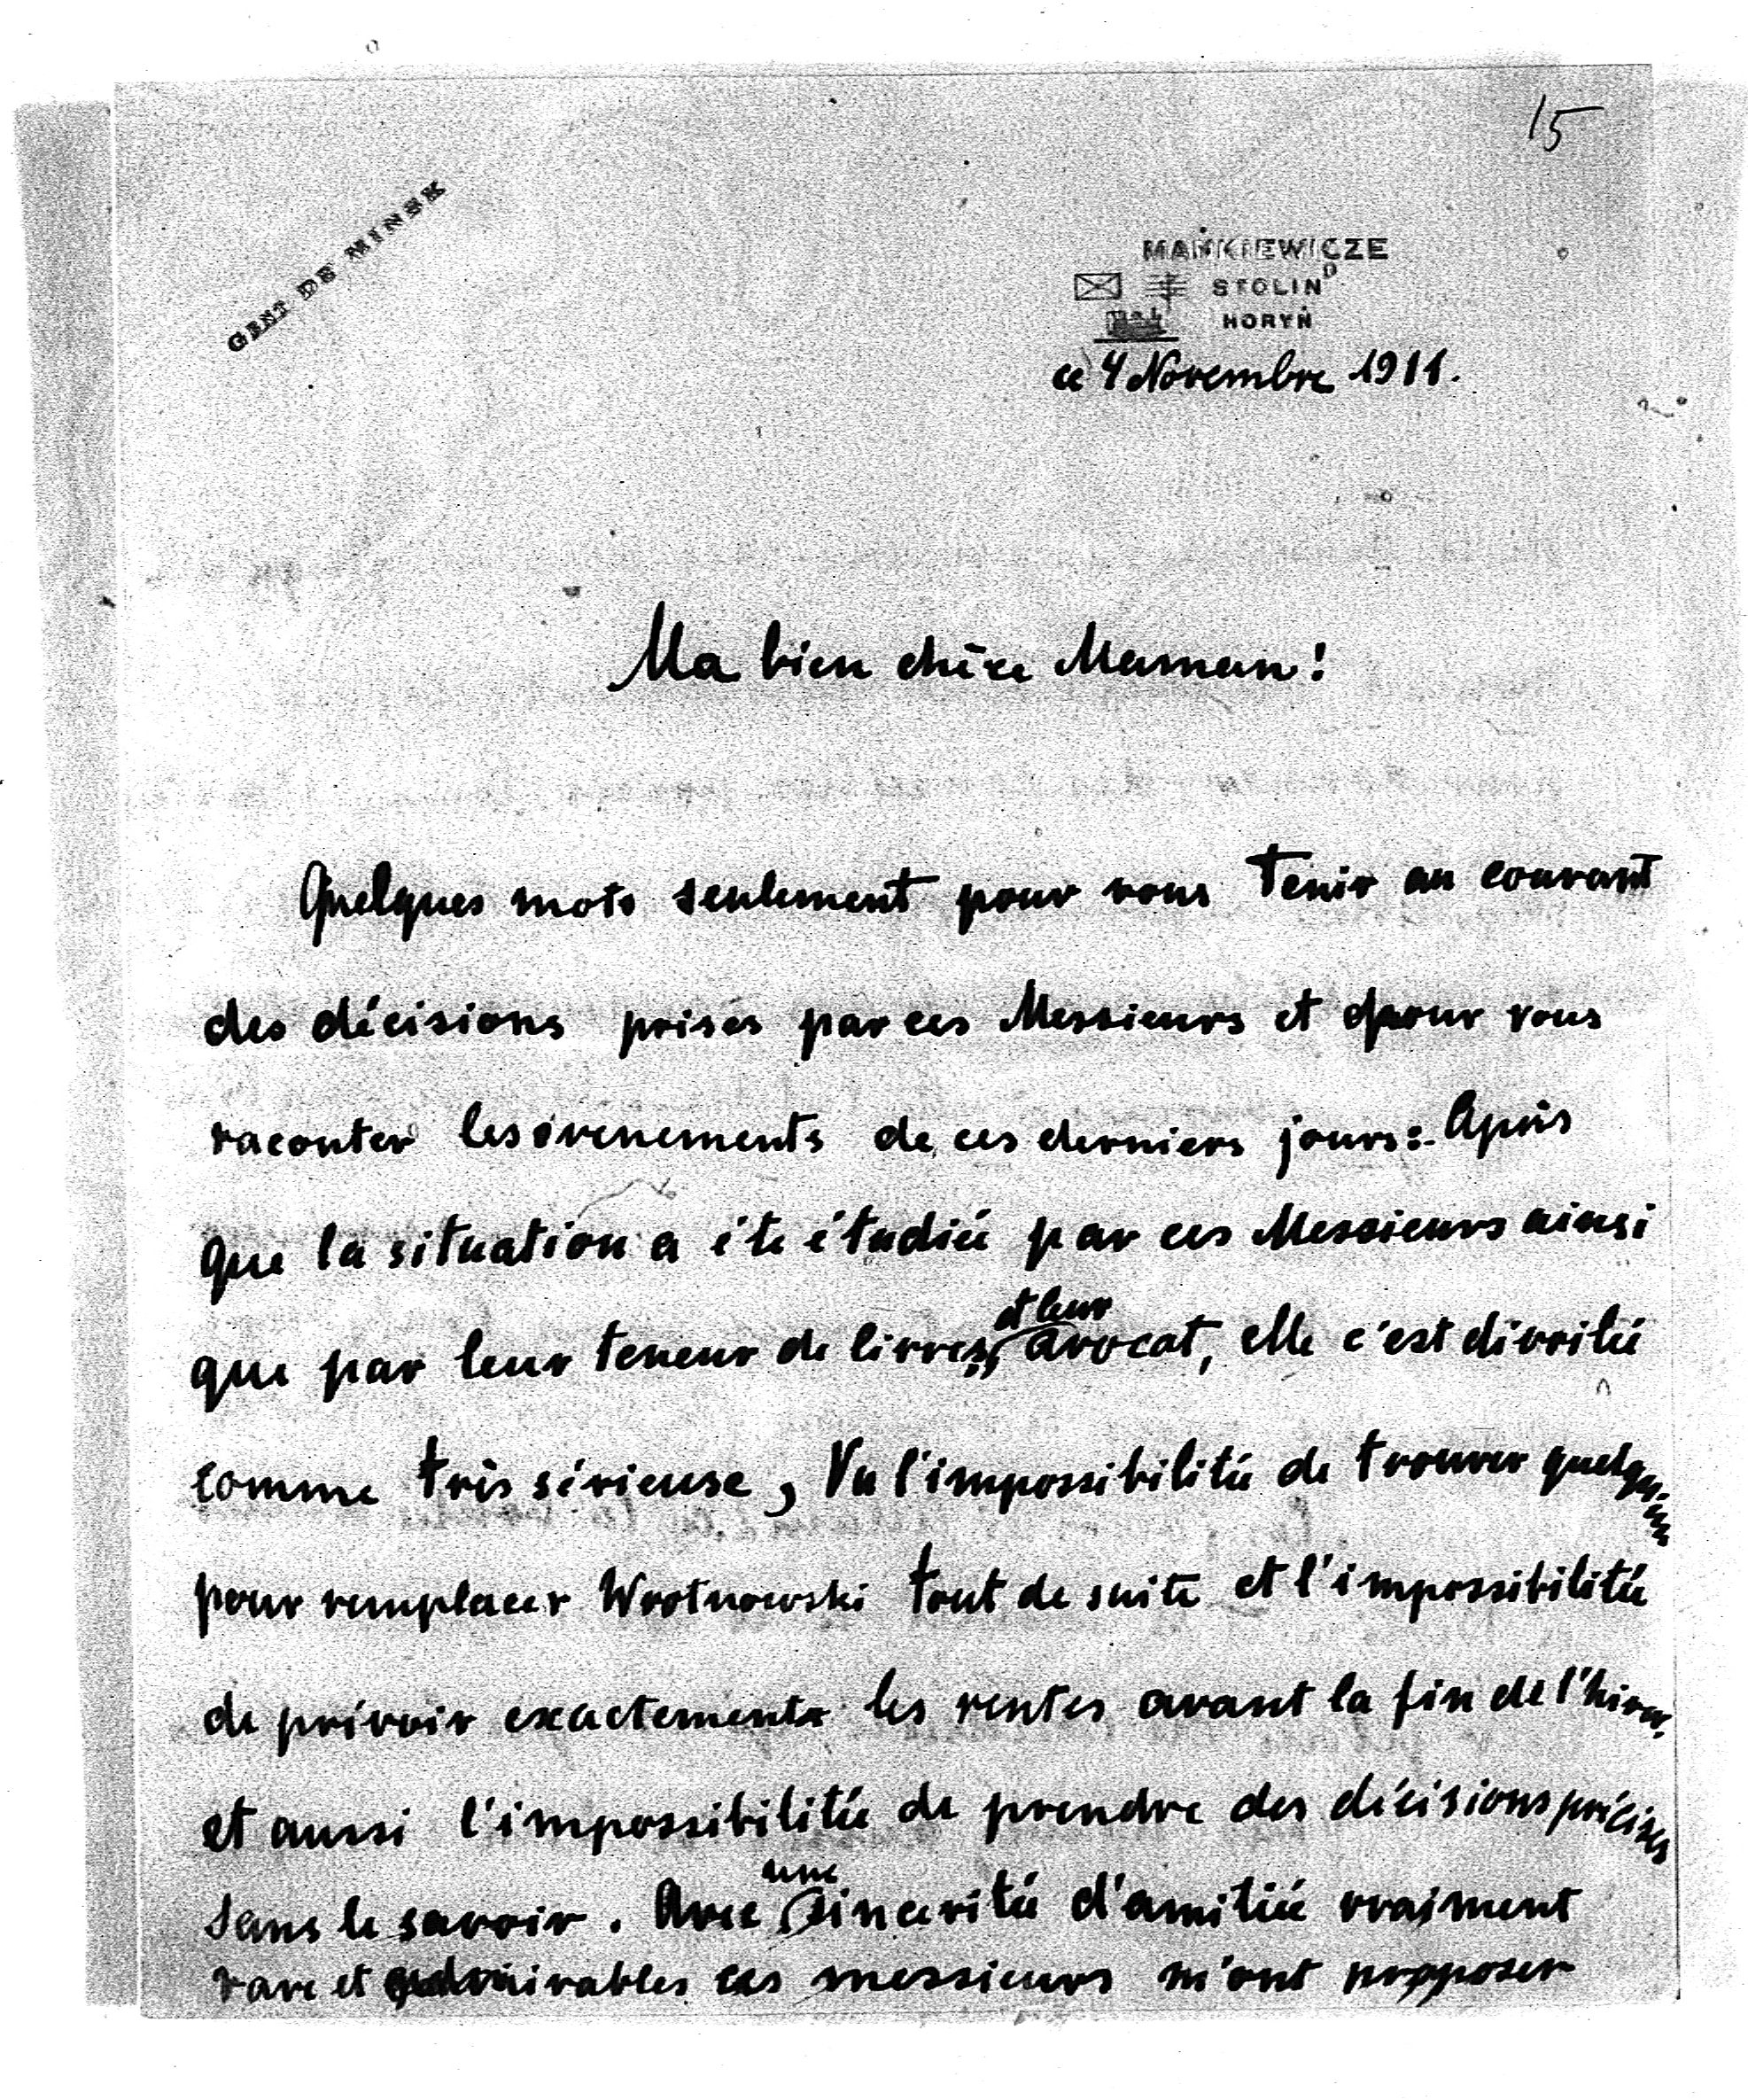 15
GENT DE MINSK
MAŃKIEWICZE
STOLIN
HORYŃ
ce 4 Novembre 1911.
Ma bien chère Maman!
Quelques mots seulement pour vous tenir au courant
des décisions prises par ces Messieurs et pour vous
raconter les évenements de ces derniers jours:- Après
que la situation a été étudiée par ces Messieurs ainsi
que par leur teneur de livres, et leur avocat, elle c'est dévoilée
comme très sérieuse, Vu l'impossibilitée de trouver quelqu'un
pour remplacer Wrotnowski tout de suite et l'impossibilitée
de prévoir exactements les rentes avant la fin de l'hiver,
et aussi l'impossibilitée de prendre des décisions précises
sans le savoir. Avec une sincéritée d'amitiée vraiment
rare et admirables ces messieurs m'ont proposer